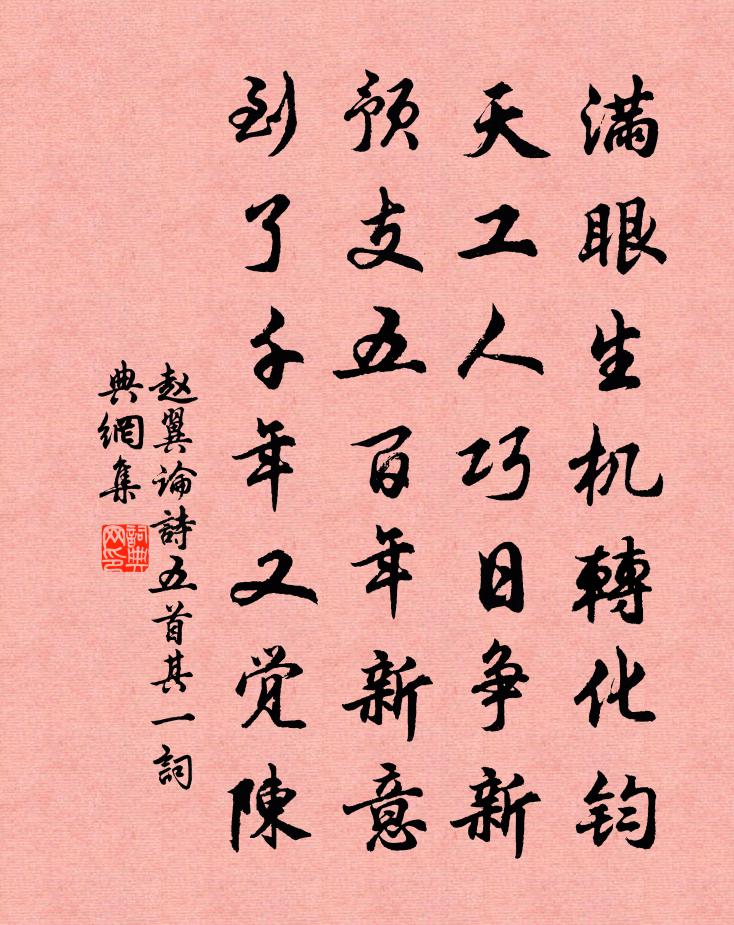 滿眼生机轉化鈞
天工人巧日争新
預支五百年新意
到了千年又覺陳
赵翼論詩五首其一詞
典網集
詞典
网印